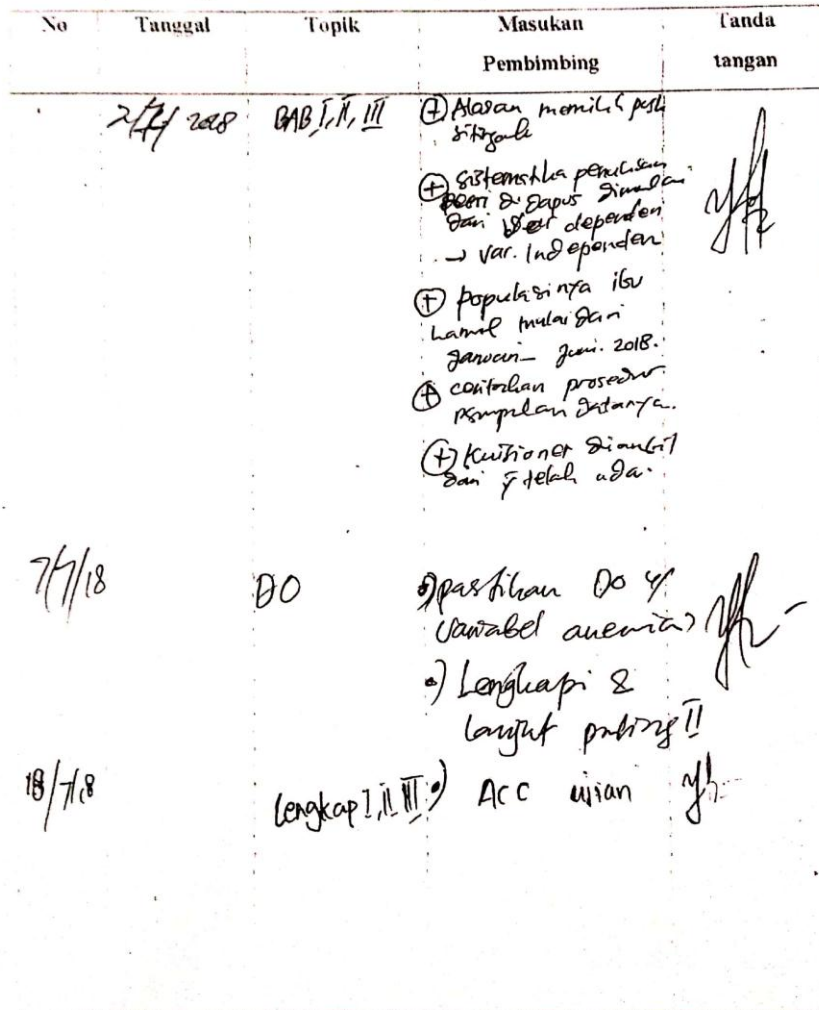 No Tanggal Topik Masukan Pembimbing Tanda tangan
2018 BAB I, II, III
(+) Alasan memilih
(+) sistematika penulisan
dimulai
dari dependen
→ var. independen
(+) populasinya ibu
hamil mulai dari
januari - juni. 2018.
(+) prosedur
datanya.
(+) Kuisioner diambil
dari yg telah ada.
7/7/18 DO •) pastikan DO
variabel anemia
•) Lengkapi &
lanjut II
18/7/18 Lengkap I, II, III •) ACC ujian